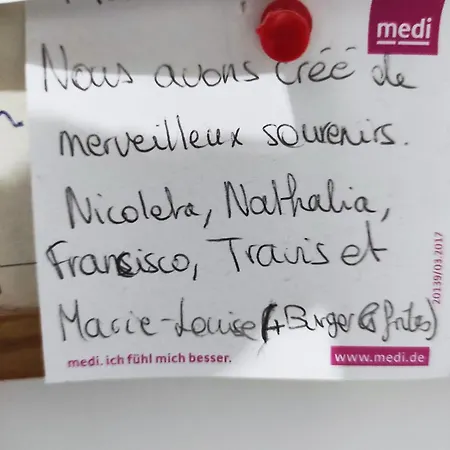 medi
Nous avons créé de
merveilleux souvenirs.
Nicoleta, Nathalia,
Fransisco, Travis et
Marie-Louise (+ Burger & frites)
20139/03.2017
medi. ich fühl mich besser.
www.medi.de